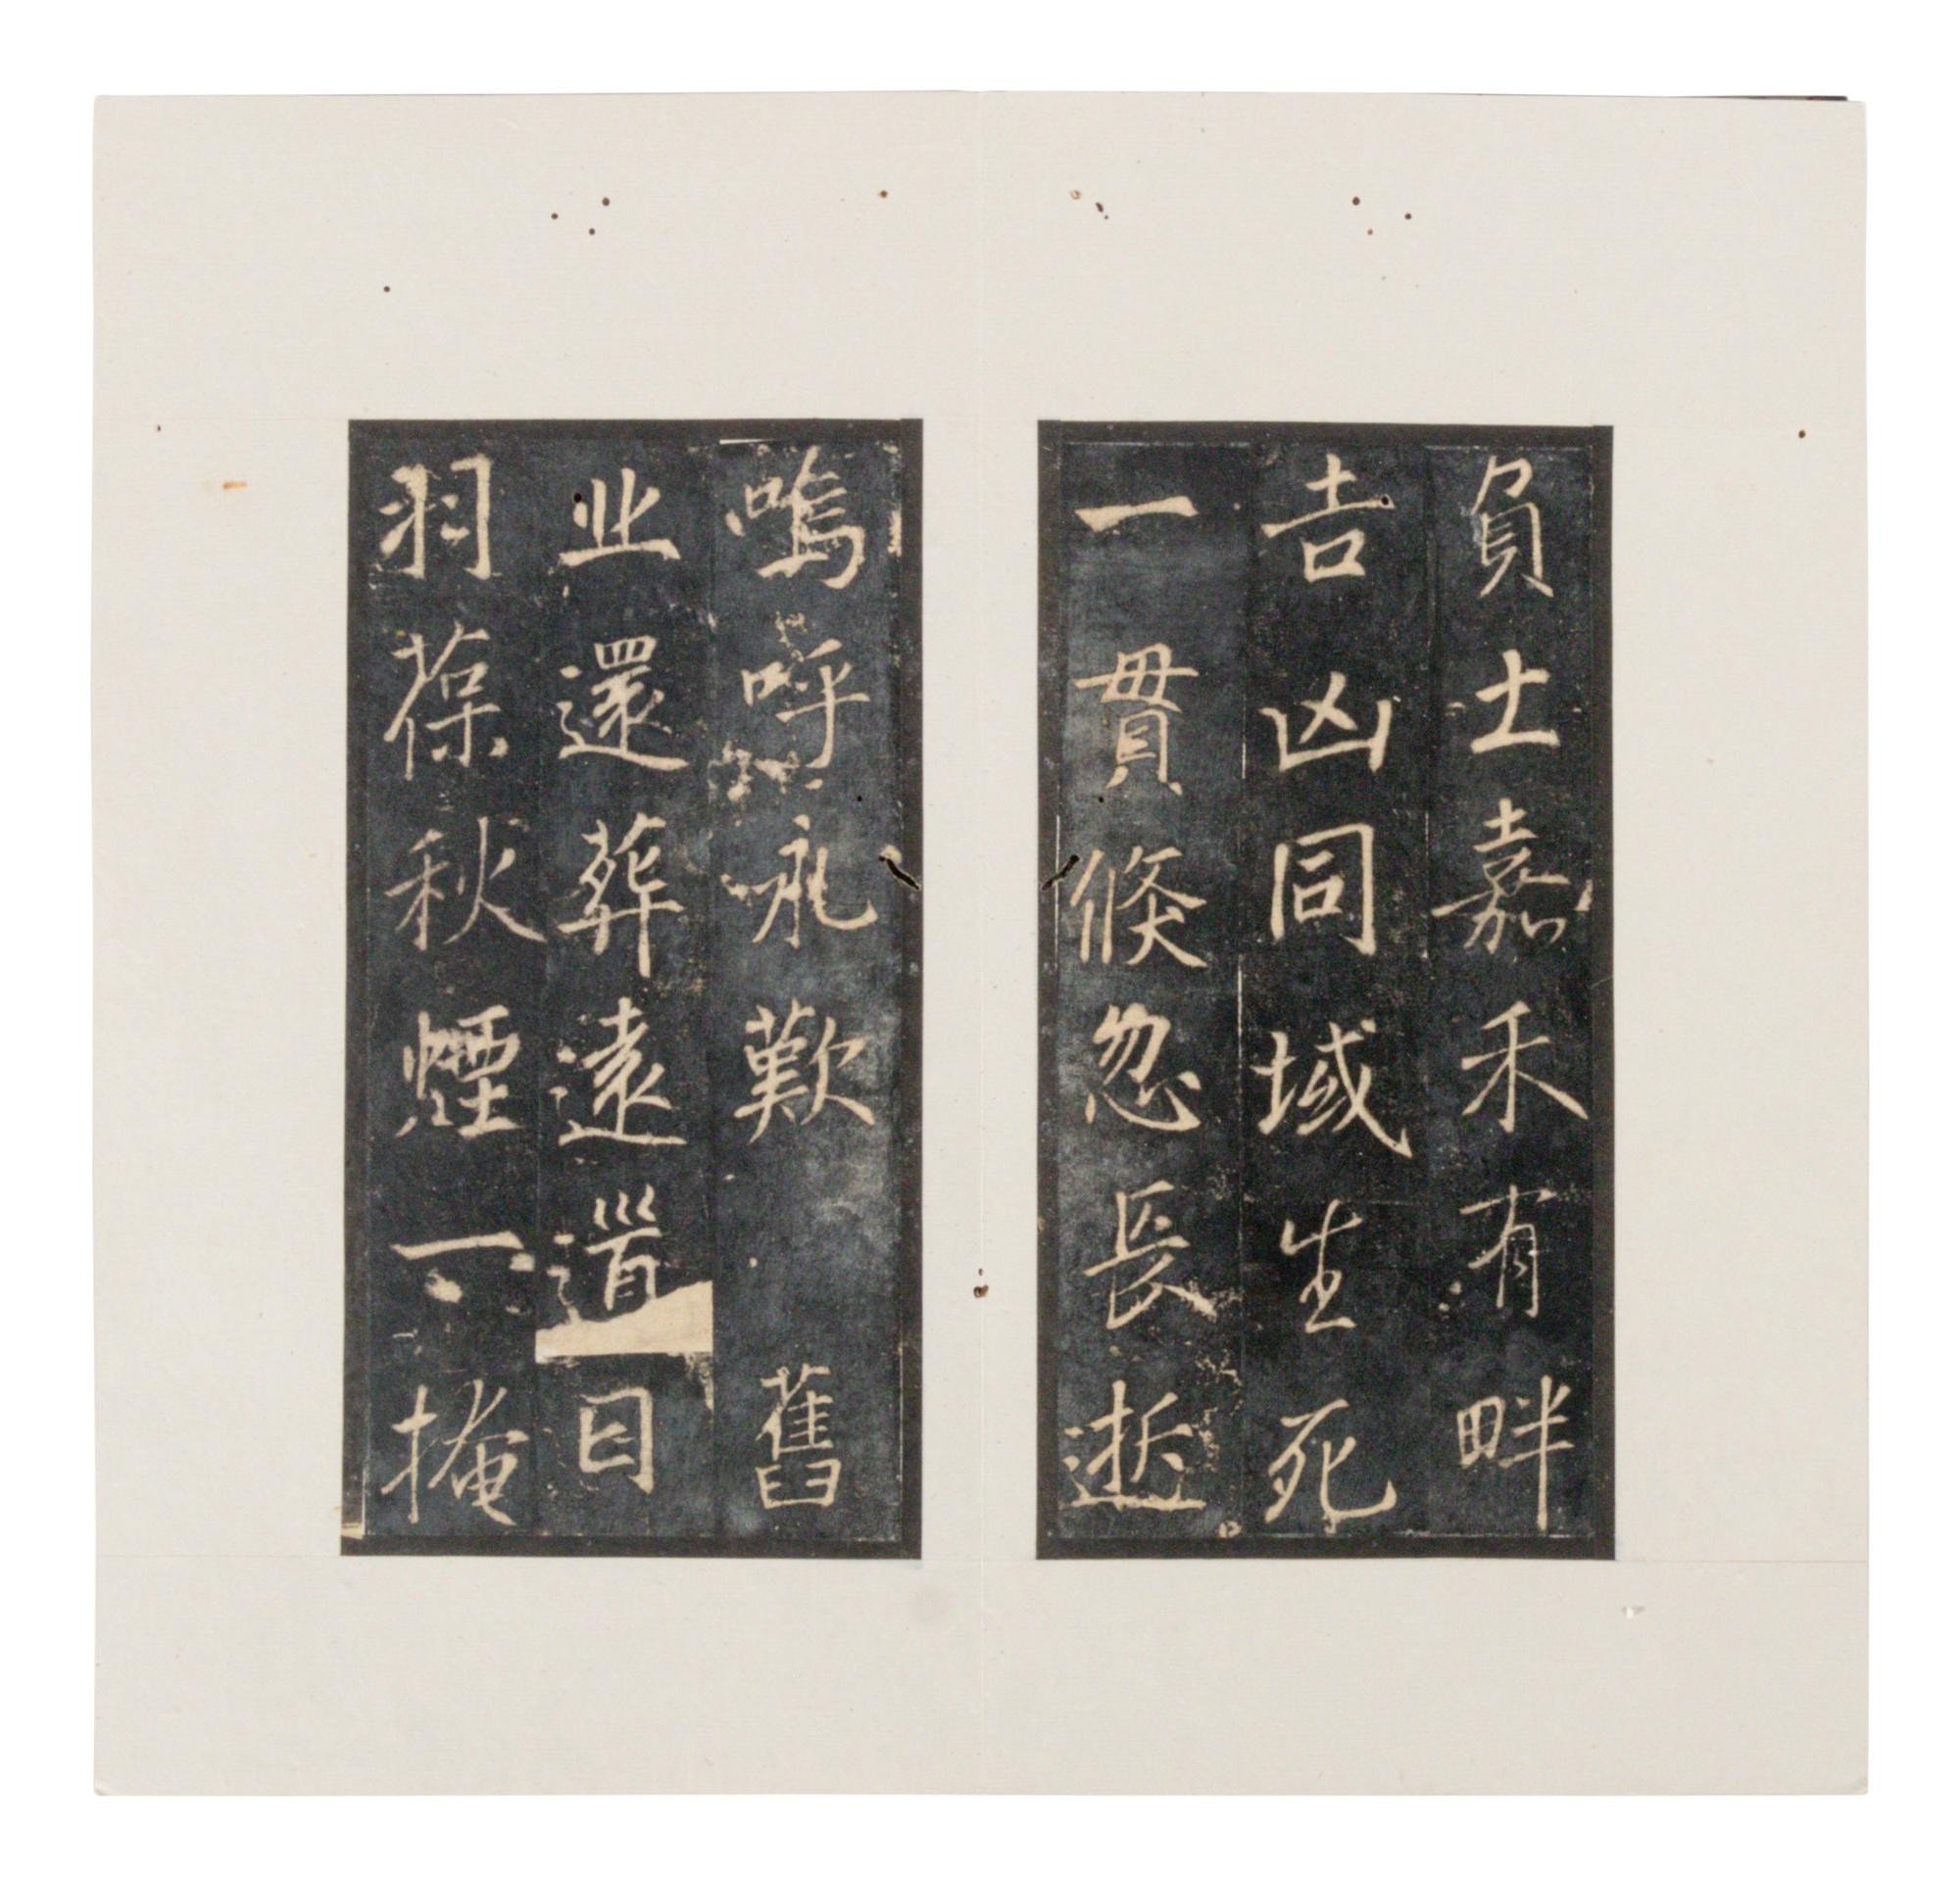 負土嘉禾有畔
吉凶同域生死
一貫倏忽長逝
嗚呼永歎　舊
丘還葬遠道日
羽葆秋煙一掩